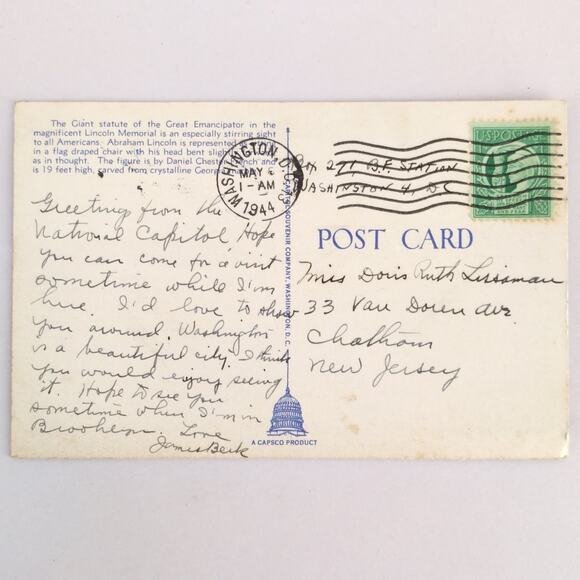 The Giant statute of the Great Emancipator in the
magnificent Lincoln Memorial is an especially stirring sight
to all Americans. Abraham Lincoln is represented
in a flag draped chair with his head bent slightly
as in thought. The figure is by Daniel Chester French and
is 19 feet high, carved from crystalline Georgia
WASHINGTON, D.C.
MAY
1-AM
1944
Box 271, B.F. STATION
WASHINGTON 4, D.C
U.S. POSTAGE
POST CARD
Greetings from the
National Capitol. Hope
you can come for a visit
sometime while I'm
here. I'd love to show
you around. Washington
is a beautiful city. I think
you would enjoy seeing
it. Hope to see you
sometime when I'm in
Love
James
Miss Doris Ruth Lissman
33 Van Doren Ave.
Chatham
New Jersey
CAPITOL SOUVENIR COMPANY, WASHINGTON, D. C.
A CAPSCO PRODUCT